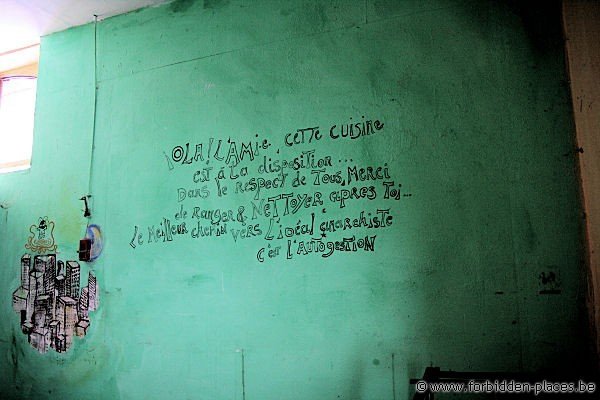 ¡OLA! L'AMi.e, cette cuisine
est à la disposition...
Dans le respect de Tous, Merci
de Ranger & NETTOYER après Toi...
Le Meilleur chemin vers l'idéal anarchiste
c'est l'AUTogestion
© www.forbidden-places.be